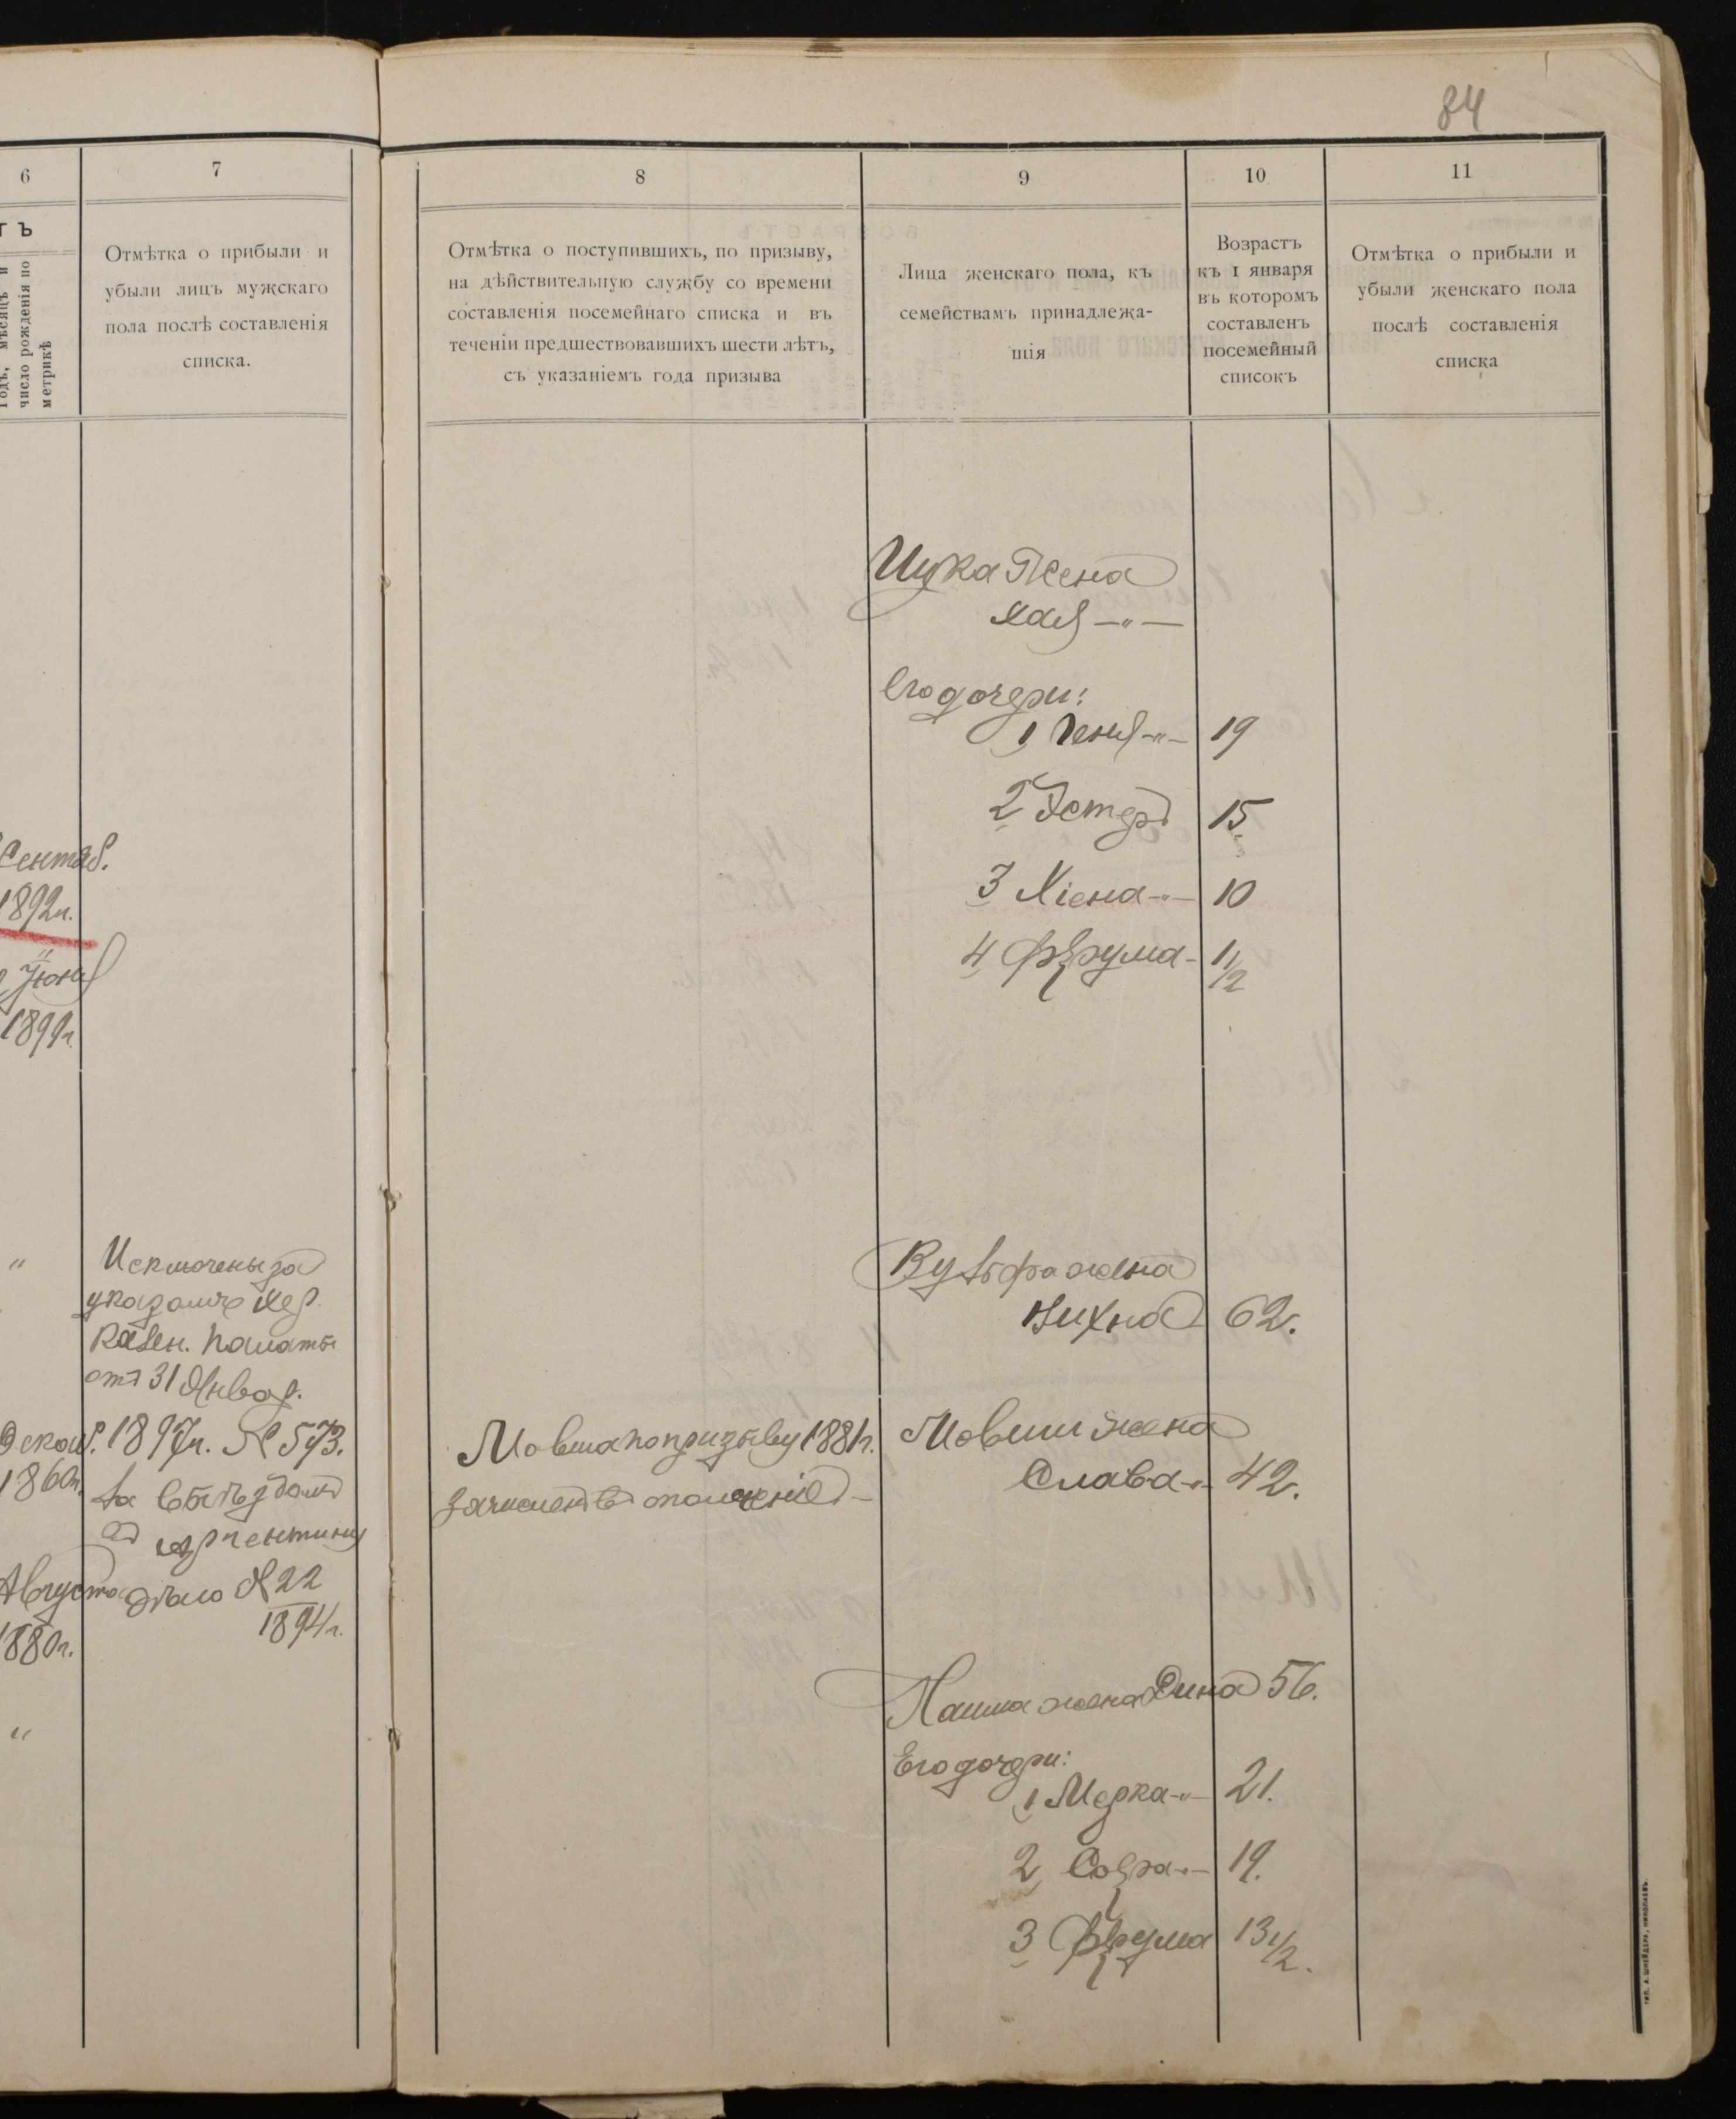 84
6
7
8
9
10
11
ТЪ
Годъ, мѣсяцъ и
число рожденія по
метрикѣ
Отмѣтка о прибыли и
убыли лицъ мужскаго
пола послѣ составленія
списка.
Отмѣтка о поступившихъ, по призыву,
на дѣйствительную службу со времени
составленія посемейнаго списка и въ
теченіи предшествовавшихъ шести лѣтъ,
съ указаніемъ года призыва
Лица женскаго пола, къ
семействамъ принадлежа-
щія
Возрастъ
къ 1 января
въ которомъ
составленъ
посемейный
списокъ
Отмѣтка о прибыли и
убыли женскаго пола
послѣ составленія
списка
Ицка Жена
Хая —„—
Его дочери:
1 Геня -„- 19
2 Эстеръ 15
3 Хiена -„- 10
4 Фрума - 1 1/2
Сентяб.
1892г.
Юня
1899г.
Исключены за
указомъ Хер.
Казен. Палаты
отъ 31 Январ.
1897г. № 573.
за выѣздомъ
въ Аргентину
дѣло № 22
1894г.
Декаб.
1860г.
Августа
1880г.
Мовша по призыву 1881г.
зачисленъ въ ополченіе -
Вульфа жена
Бихна 62.
Мовши жена
Слава -„- 42.
жена Дина 56.
Его дочери:
1 Мерка -„- 21.
2 Сура -„- 19.
3 Фрума 13 1/2.
ТИП. А. ШНЕЙДЕРА, НИКОЛАЕВЪ.